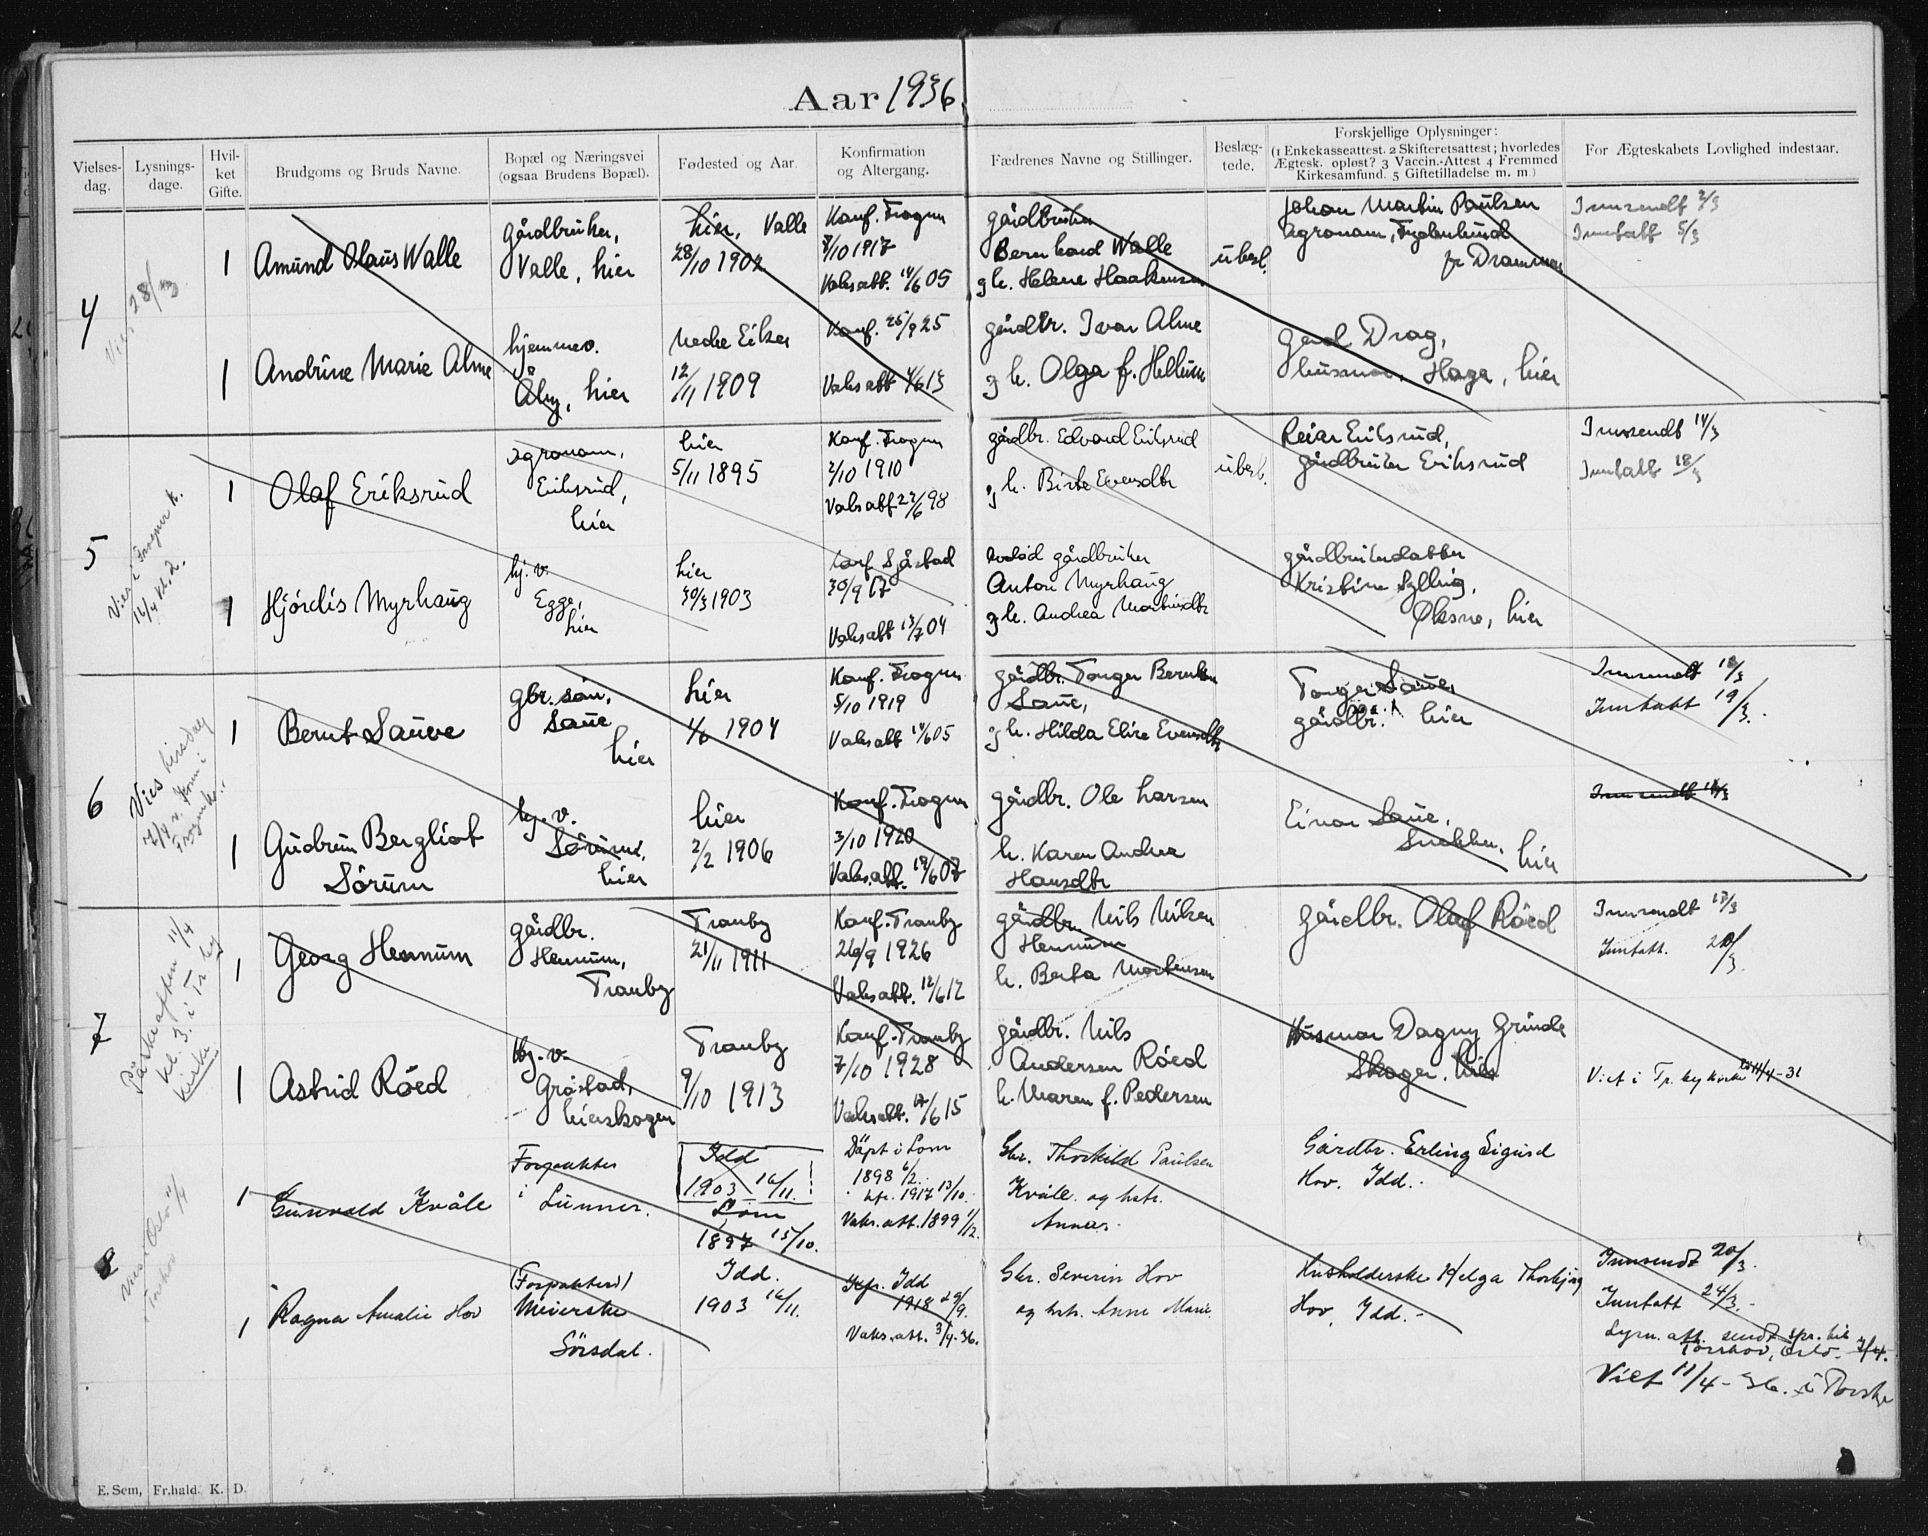 Aar 1936.
Vielses-dag.
Lysnings-dage.
Hvil-ket Gifte.
Brudgoms og Bruds Navne.
Bopæl og Næringsvei (ogsaa Brudens Bopæl).
Fødested og Aar.
Konfirmation og Altergang.
Fædrenes Navne og Stillinger.
Beslæg-tede,
Forskjellige Oplysninger:
(1 Enkekasseattest. 2 Skifteretsattest; hvorledes
Ægtesk. opløst? 3 Vaccin.-Attest 4 Fremmed
Kirkesamfund. 5 Giftetilladelse m. m)
For Ægteskabets Lovlighed indestaar.
4
Vies 28/3
1
Amund Olaus Walle
gårdbruker,
Valle, hier
hier, Valle
28/10 1902
Konf. Frogner
7/10 1917
Vaks att. 14/6 05
gårdbruker
Bernhard Walle
g h. Helene Haakensen
ubesl.
Johan Martin Paulsen
agronom,
fr Drammen
Innsendt 2/3
Inntatt 5/3
1
Andrine Marie Alme
hjemmev.
Åby, hier
Nedre Eiker
12/11 1909
Konf. 25/9 25
Vaks att 4/6 13
gårdbr. Ivar Alme
g h. Olga f. Hellum
Gerd Drag,
husmor, Haga, hier
5
Vies i Frogner k.
16/4 kl. 2.
1
Olaf Eriksrud
agronom,
Eriksrud,
hier
hier
5/11 1895
Konf. Frogner
2/10 1910
Vaks att 22/6 98
gårdbr. Edvard Eriksrud
g h. Birte Evensdtr
ubesl.
Reier Eriksrud,
gårdbruker Eriksrud
Innsendt 14/3
Inntatt 18/3
1
Hjördis Myrhaug
hj. v.
Egge,
hier
hier
30/3 1903
Konf Sjåstad
30/9 17
Vaks att 13/7 04
avdød gårdbruker
Anton Myrhaug
g h. Andrea Martinsdtr
gårdbrukerdatter
Kristine Sylling,
Øksne, hier
6
Vies tirsdag
1
Bernt Sauve
gbr. sön,
Saue
hier
hier
1/6 1904
Konf. Frogner
5/10 1919
Vaks att 14/6 05
gårdbr. Torger Berntsen
Saue,
g h. Hilda Elise Evensdtr
Torger Saue,
gårdbr. hier
Innsendt 18/3
Inntatt 19/3.
1
Gudrun Bergliot
Sörum
hj. v.
Sörum,
hier
hier
2/2 1906
Konf. Frogner
3/10 1920
Vaks. att. 19/6 07
gårdbr. Ole Larsen
h. Karen Andrea
Hansdtr
Einar Saue,
Snekker, hier
Innsendt 18/3
7
Påskeaften 11/4
kl. 3. i Tr by
kirke
1
Georg Hennum
gårdbr.
Hennum,
Tranby
Tranby
21/11 1911
Konf. Tranby
26/9 1926
Vaks att. 12/6 12
gårdbr. Nils Nilsen
Hennum
h. Berta Mortensen
gårdbr. Olaf Röed
Innsendt 18/3
Inntatt. 20/3.
1
Astrid Röed
Hj. v.
Gråstad,
Lierskogen
Tranby
9/10 1913
Konf. Tranby
7/10 1928
Vaks att. 17/6 15
gårdbr. Nils
Andersen Röed
h. Maren f. Pedersen
Husmor Dagny Grinde
Skoger.
Viet i Tr. by kirke 11/4-36
8
Vies i Oslo 11/4
Torshov
1
Gunvald Kvåle
Forpakter
i Lunner.
Idd
1903 16/11.
Lom
1897 15/10.
Döpt i Lom
1898 6/2.
kfr. 1917 13/10.
Vaks. att. 1899 1/12.
Gbr. Thorkild Paulsen
Kvåle og hstr.
Anna.
Gårdbr. Erling Sigurd
Hov. Idd.
1
Ragna Amalie Hov
Meierske
Sörsdal.
Idd.
1903 16/11.
Kfr. Idd
1918 29/9.
Vaks. att. 3/4-36.
Gbr. Severin Hov
og hstr. Anne Marie
Husholderske Helga Thorbjörg
Hov, Idd.
Innsendt 20/3.
Inntatt 24/3.
Lysn. att. sendt spr. til
Torshov, Oslo 3/4.
Viet 11/4-36. i Torshov
E. Sem, Fr.hald. K. D.